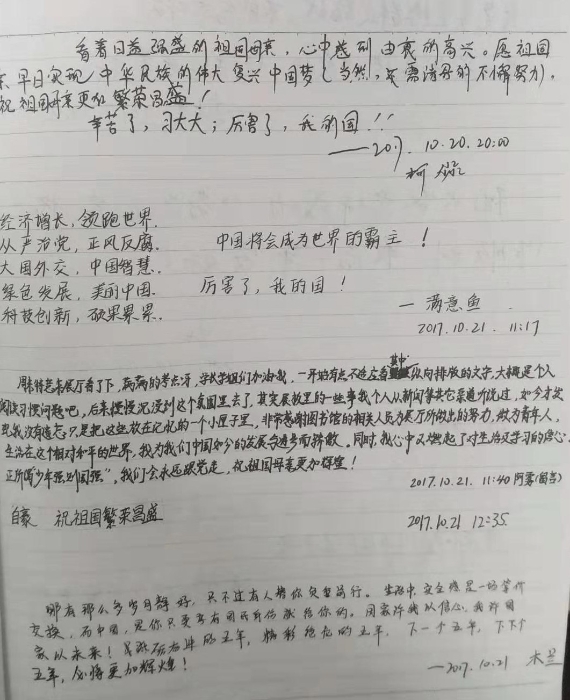 看着日益强盛的祖国母亲，心中感到由衷的高兴。愿祖国
早日实现中华民族的伟大复兴中国梦（当然，英需的不懈努力），
祝祖国母亲更加繁荣昌盛！
辛苦了，习大大；厉害了，我的国！！
——2017. 10.20. 20:00
柯
经济增长，领跑世界.
从严治党，正风反腐. 中国将会成为世界的霸主！
大国外交，中国智慧.
绿色发展，美丽中国. 厉害了，我的国！
科技创新，硕果累累. —满意鱼
2017.10.21. 11:17
周末特意来展厅看了下，满满的考点呀，学长学姐们加油哦，一开始有点不适应看其中纵向排版的文字，大概是个人
阅读习惯问题吧，后来慢慢沉浸到这个氛围里去了，其实展板里的一些事我个人从新闻等其它渠道听说过，如今才发
现我没有遗忘，只是把这些放在记忆的一个小匣子里，非常感谢图书馆的相关人员为展厅所做出的努力，做为青年人，
生活在这个相对和平的世界，我为我们中国如今的发展与进步而骄傲。同时，我心中又燃起了对生活及学习的信心，
正所谓“少年强则国强”，我们会永远跟党走，祝祖国母亲更加辉煌！
2017.10.21. 11:40 阿雾(留言)
自豪 祝祖国繁荣昌盛 2017.10.21 12:35
哪有那么多岁月静好，只不过有人替你负重前行。生活中，安全感是一场等价
交换，而中国，是你只要享有国民身份就给你的。国家许我以信心，我许国
家以未来！砥砺奋进的五年，精彩绝伦的五年，下一个五年，下下个
五年，必将更加辉煌！ —2017.10.21 木兰